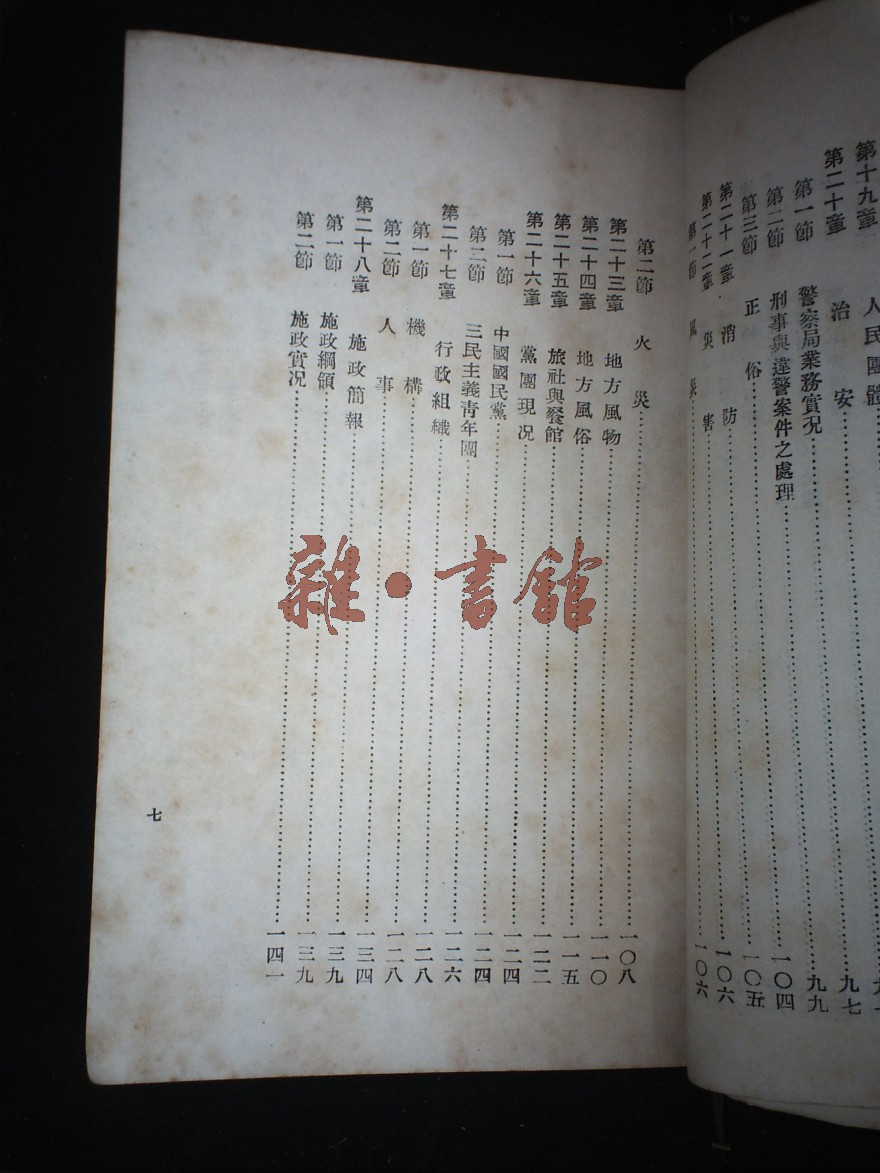 第十九章 人民團體
第二十章 治安……九七
第一節 警察局業務實況……九九
第二節 刑事與違警案件之處理……一〇四
第三節 正俗……一〇五
第二十一章 消防……一〇六
第二十二章 災害……一〇六
第一節 風災
第二節 火災……一〇八
第二十三章 地方風物……一一〇
第二十四章 地方風俗……一一五
第二十五章 旅社與餐館……一二二
第二十六章 黨團現况……一二四
第一節 中國國民黨……一二四
第二節 三民主義青年團……一二六
第二十七章 行政組織……一二八
第一節 機構……一二八
第二節 人事……一三四
第二十八章 施政簡報……一三九
第一節 施政綱領……一三九
第二節 施政實况……一四一
七
雜·書館